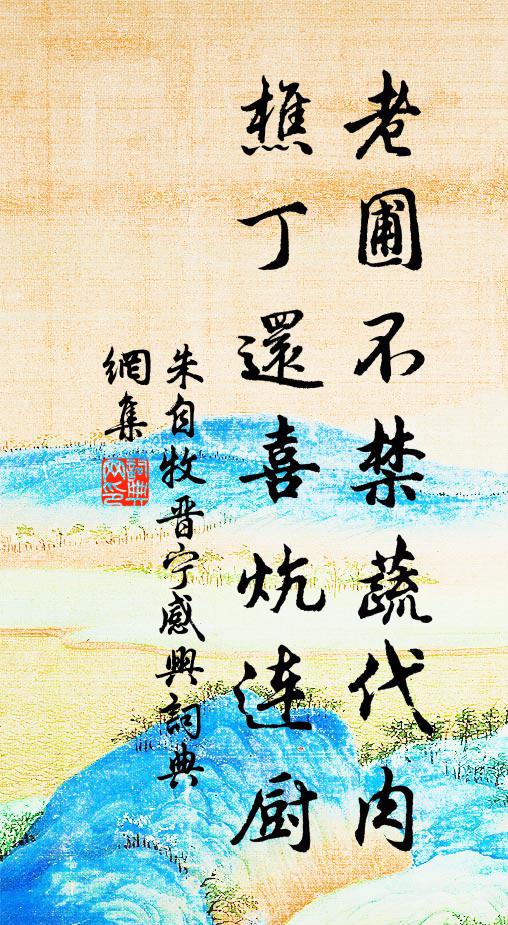 老圃不禁蔬代肉
樵丁還喜炕连厨
朱自牧晋宁感興詞典
網集
詞典網印